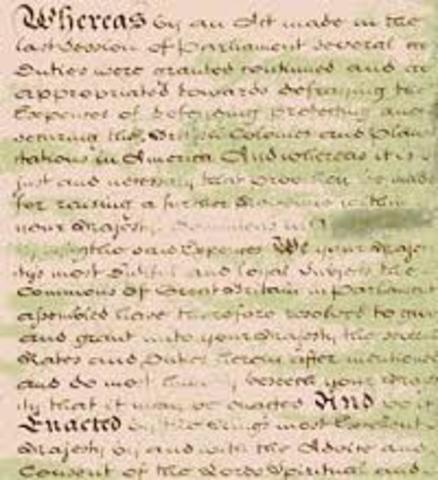 Whereas by an Act made in the
last Session of Parliament several
Duties were granted continued and
appropriated towards defraying the
Expences of defending protecting and
securing the British Colonies and Plan
tations in America And whereas it is
just and necessary that provision be made
for raising a further Revenue within
your Majestys Dominions in
the said Expences We your Majes
tys most Dutiful and loyal Subjects the
Commons of Great Britain in Parliament
assembled have therefore resolved to give
and grant unto your Majesty the several
Rates and Duties herein after mentioned
and do most humbly beseech your Majes
ty that it may be enacted And be it
Enacted by the Kings most Excellent
Majesty by and with the Advice and
Consent of the Lords Spiritual and